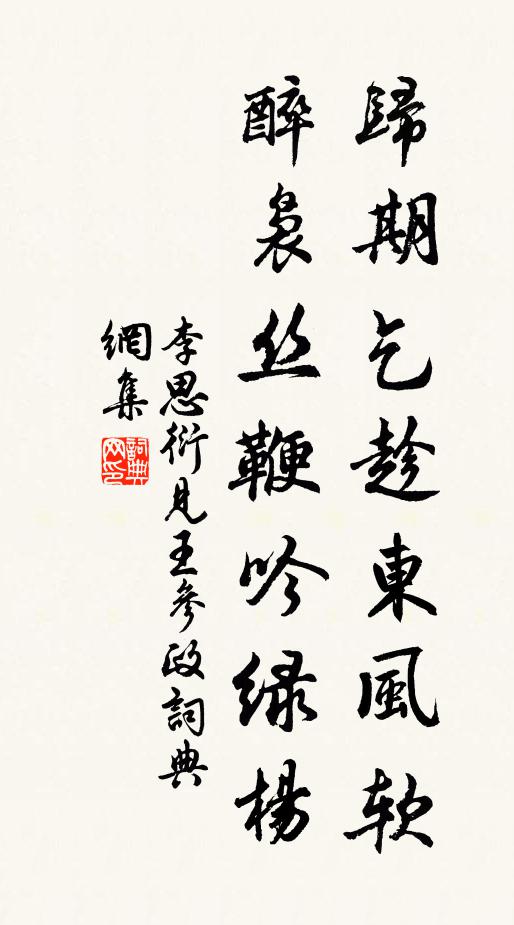 歸期乞趁東風软
醉袅丝鞭吟绿楊
李思衍見王參政詞典
網集
詞典
网印